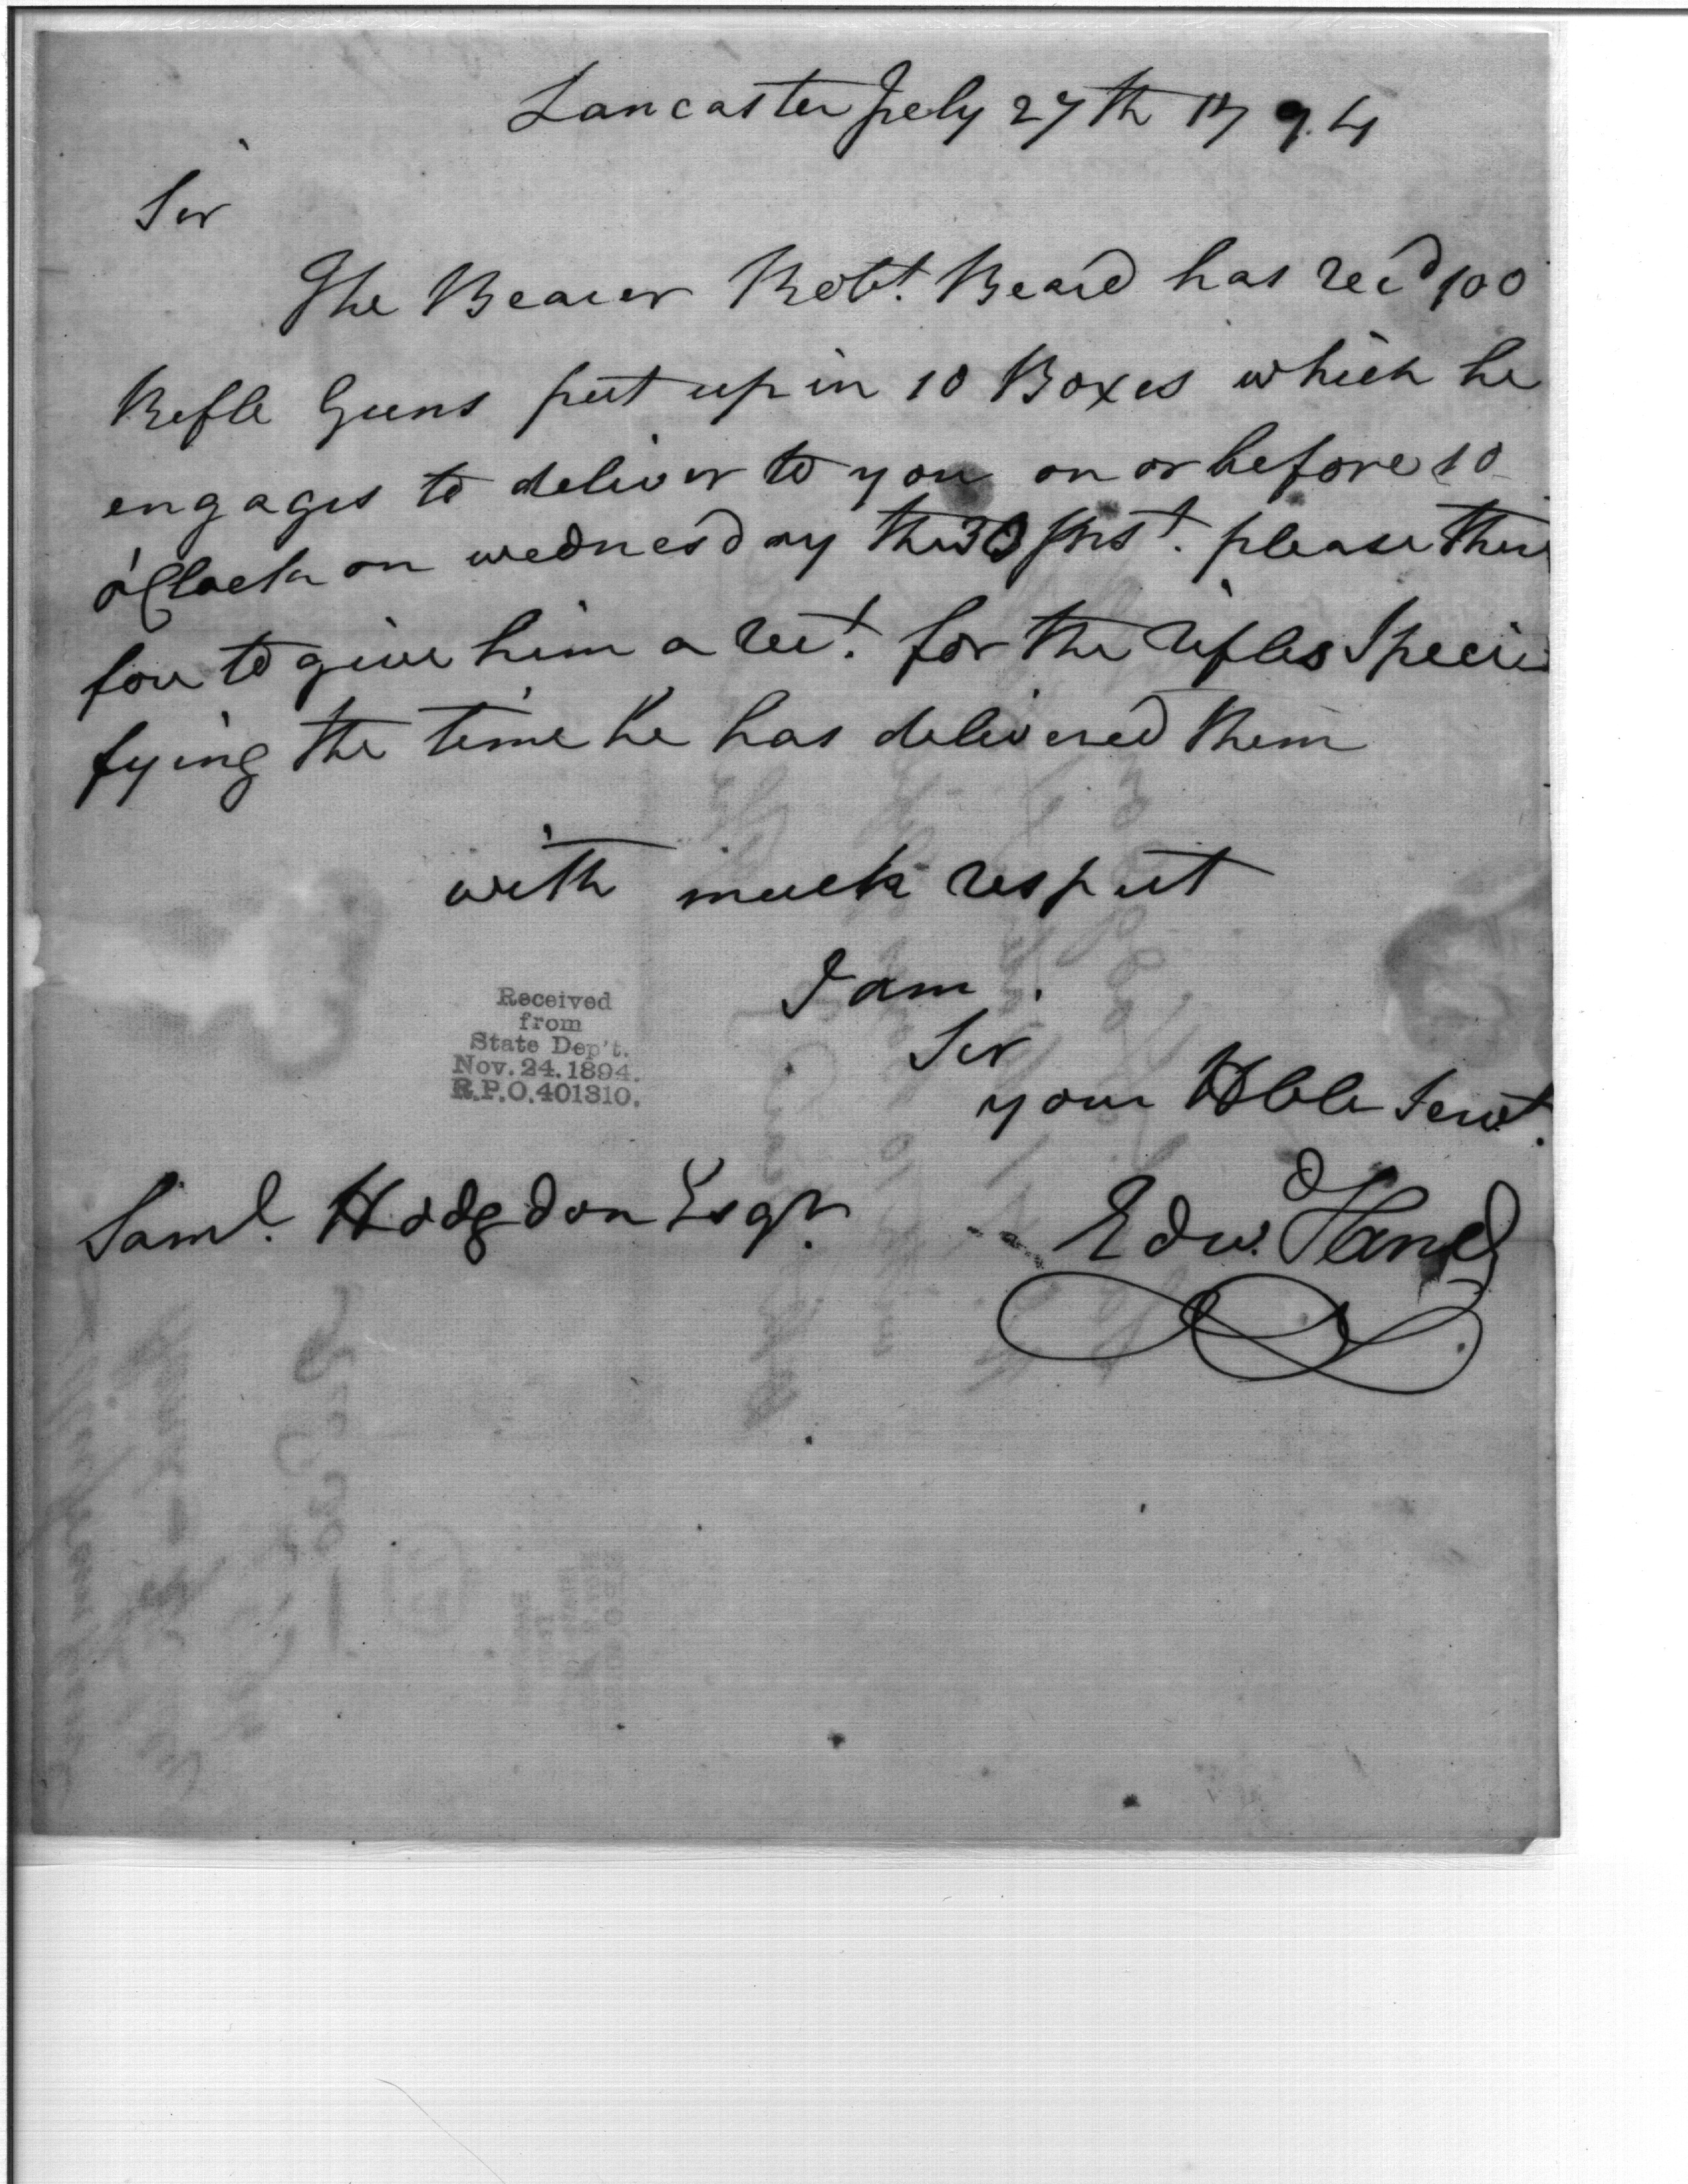 Lancaster July 27th 1794
Sir
The Bearer Robt. Beard has recd 100
Rifle Guns put up in 10 Boxes which he
engages to deliver to you on or before 10
o'Clock on wednesday the 30 Inst. please there
fore to give him a rect. for the rifles Speci
fying the time he has delivered them
with much respect
I am
Sir
your Hble Servt.
Received
from
State Dep't.
Nov. 24. 1894.
R.P.O. 401310.
Saml. Hodgdon Esqr.
Edwd. Hand